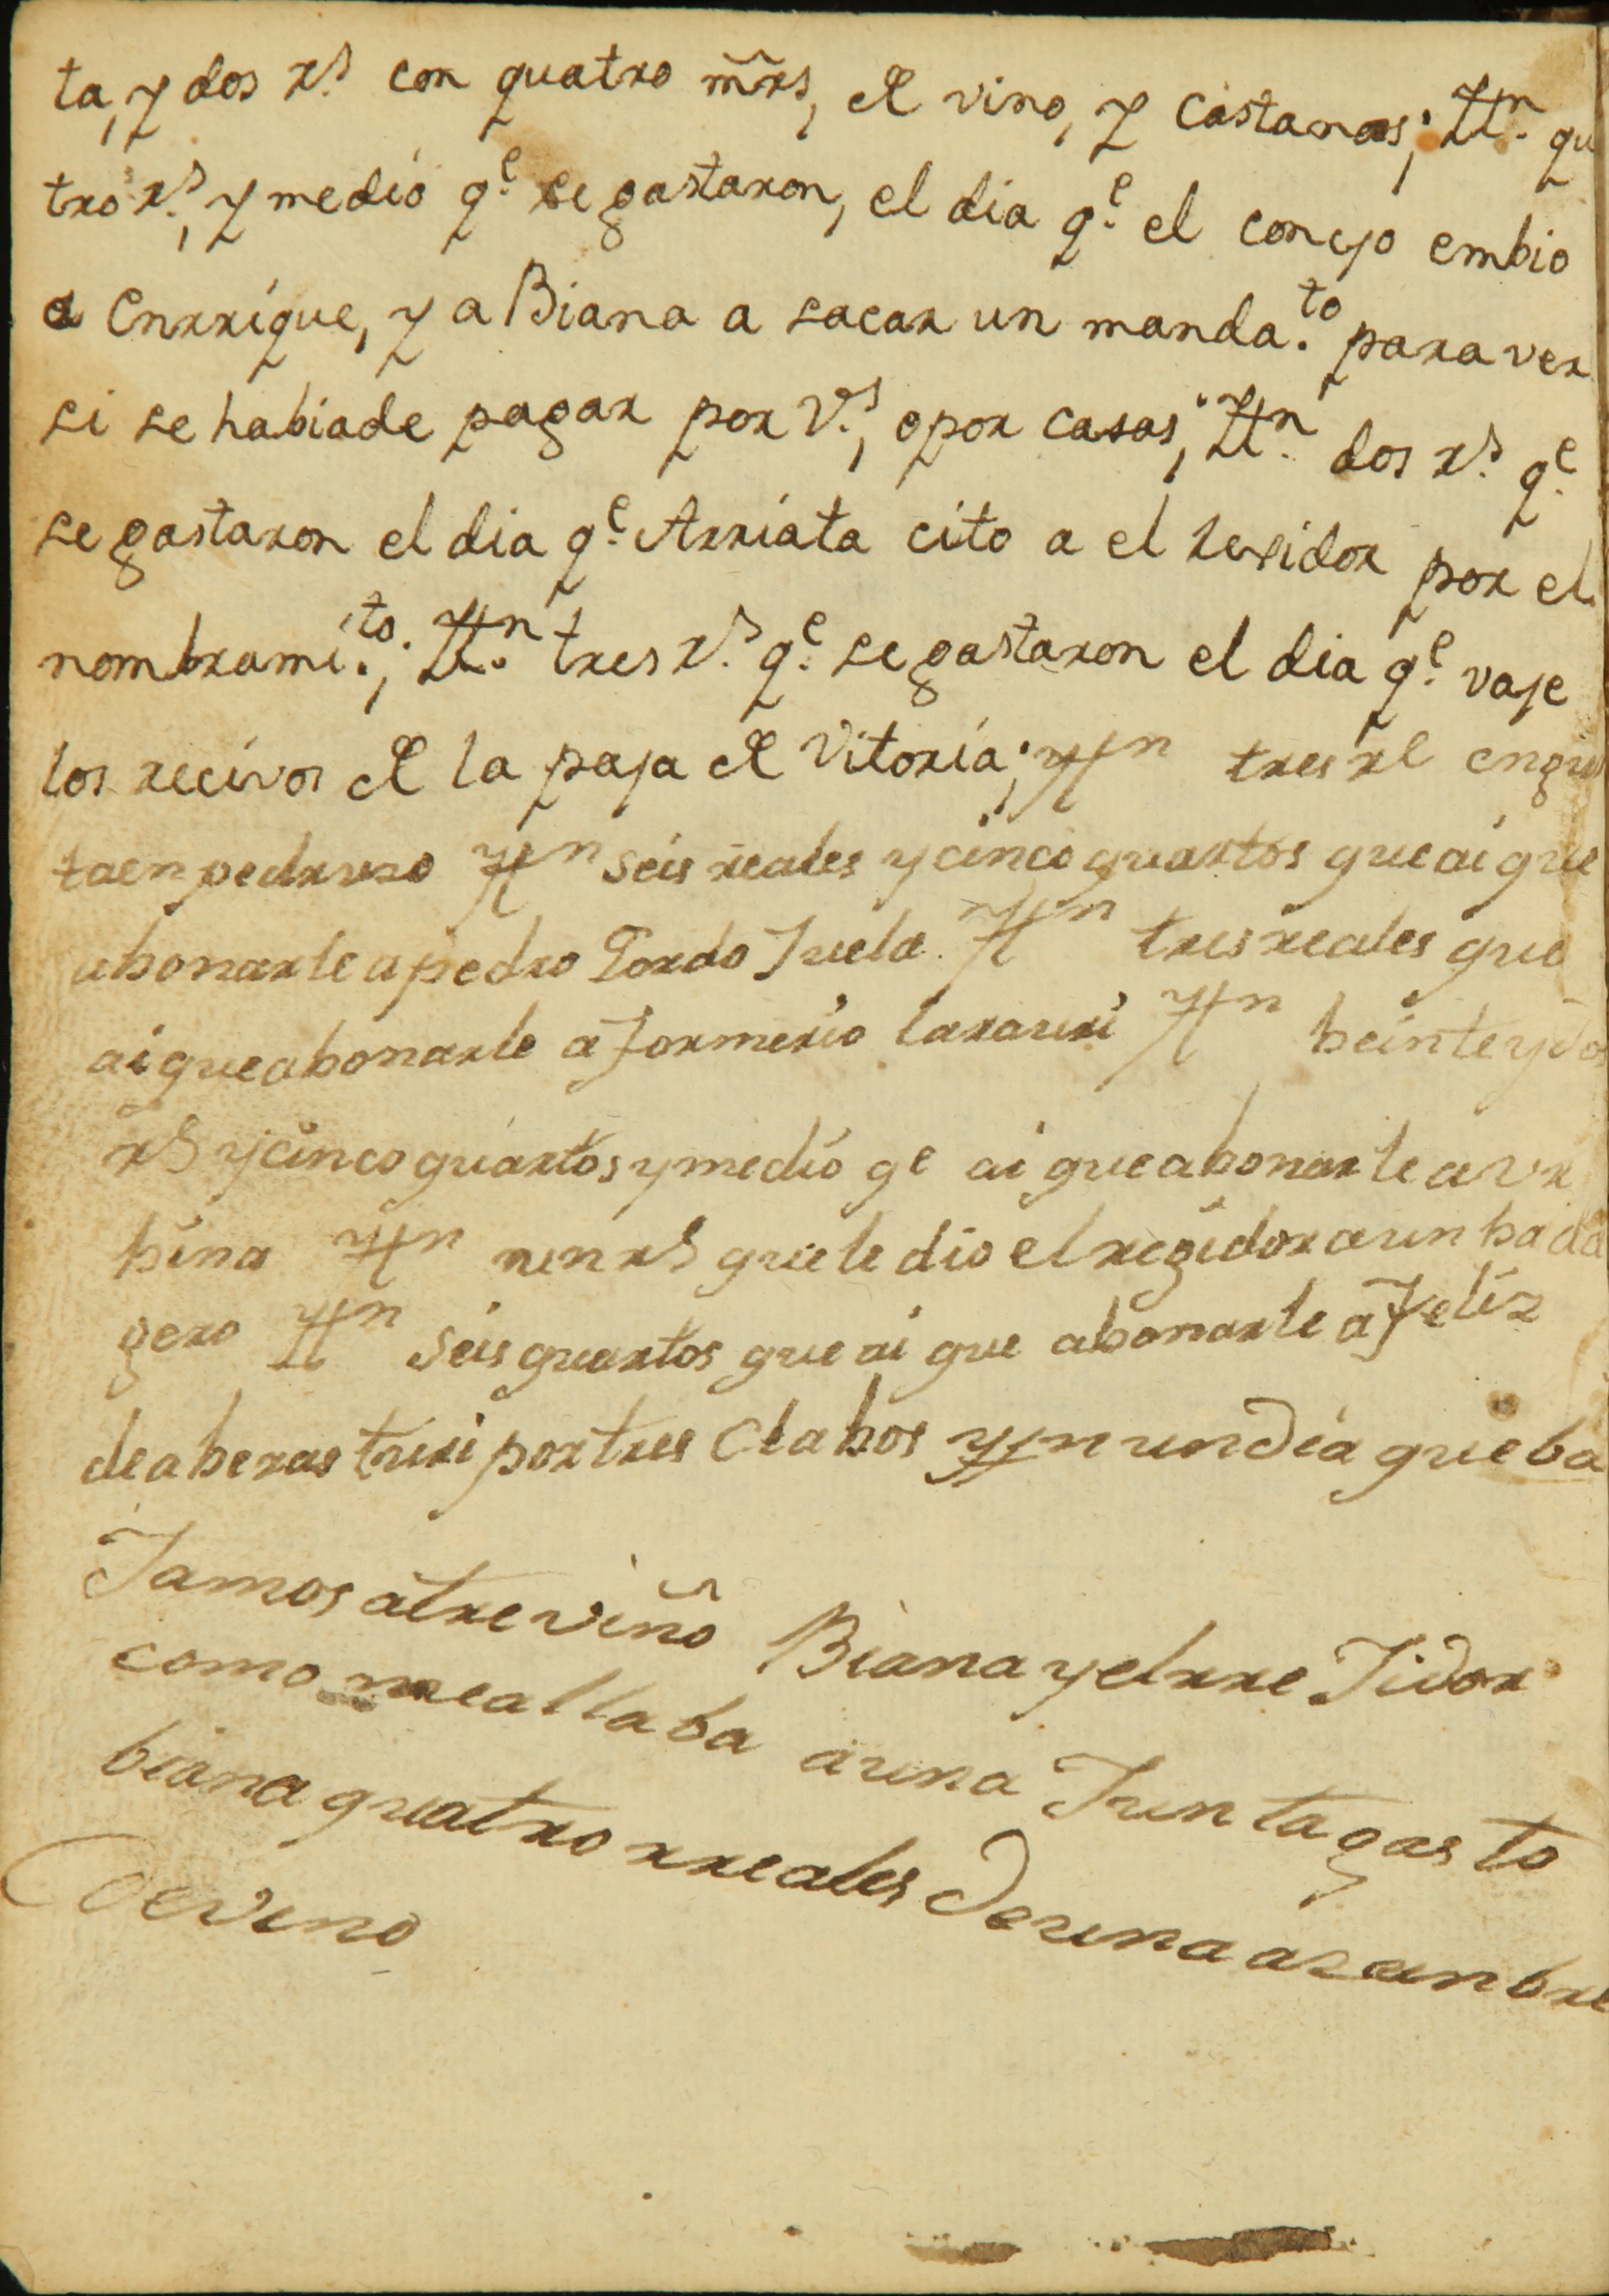 ta, y dos r.s con quatro m̃rs, de vino, y castanas; Itn. qu
tro r.s, y medio q.e se gastaron, el dia q.e el concejo embio
a Enrrique, y a Biana a sacar un manda.to para ver
si se habia de pagar por V.s, o por casas; Itn. dos r.s q.e
se gastaron el dia q.e Arriata cito a el regidor por el
nombrami.to; Itn. tres r.s q.e se gastaron el dia q.e vaje
los recivos de la paja de Vitoria; Ytn tres rl
ta en pedruzo Ytn seis reales y cinco quartos que ai que
abonarle a pedro Gordo Juela. Ytn tres reales que
ai que abonarle a formerio larauri Ytn beinte y dos
rs y cinco quartos y medio qe ai que abonarle a vr
bina Ytn un rs que le dio el regidor a un bada
gero Ytn seis quartos que ai que abonarle a Feliz
de aberasturi por tres Clabos Ytn un dia que ba
Jamos a treviño Biana y el rre Jidor
como me allaba a una Junta gasto
biana quatro rreales De una azunbre
De vino